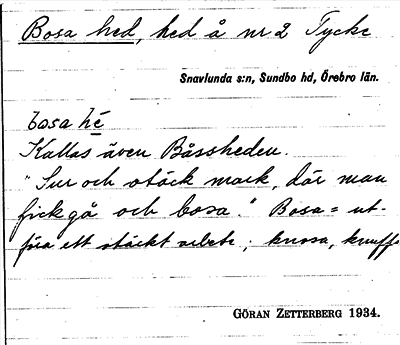 Bosa hed, hed å nr 2 Tycke
Snavlunda s:n, Sundbo hd, Örebro län.
bosa hé
Kallas även Båssheden.
"Sur och otäck mark, där man
fick gå och bosa." Bosa = ut-
föra ett otäckt arbete; knosa, knuffa
GÖRAN ZETTERBERG 1934.